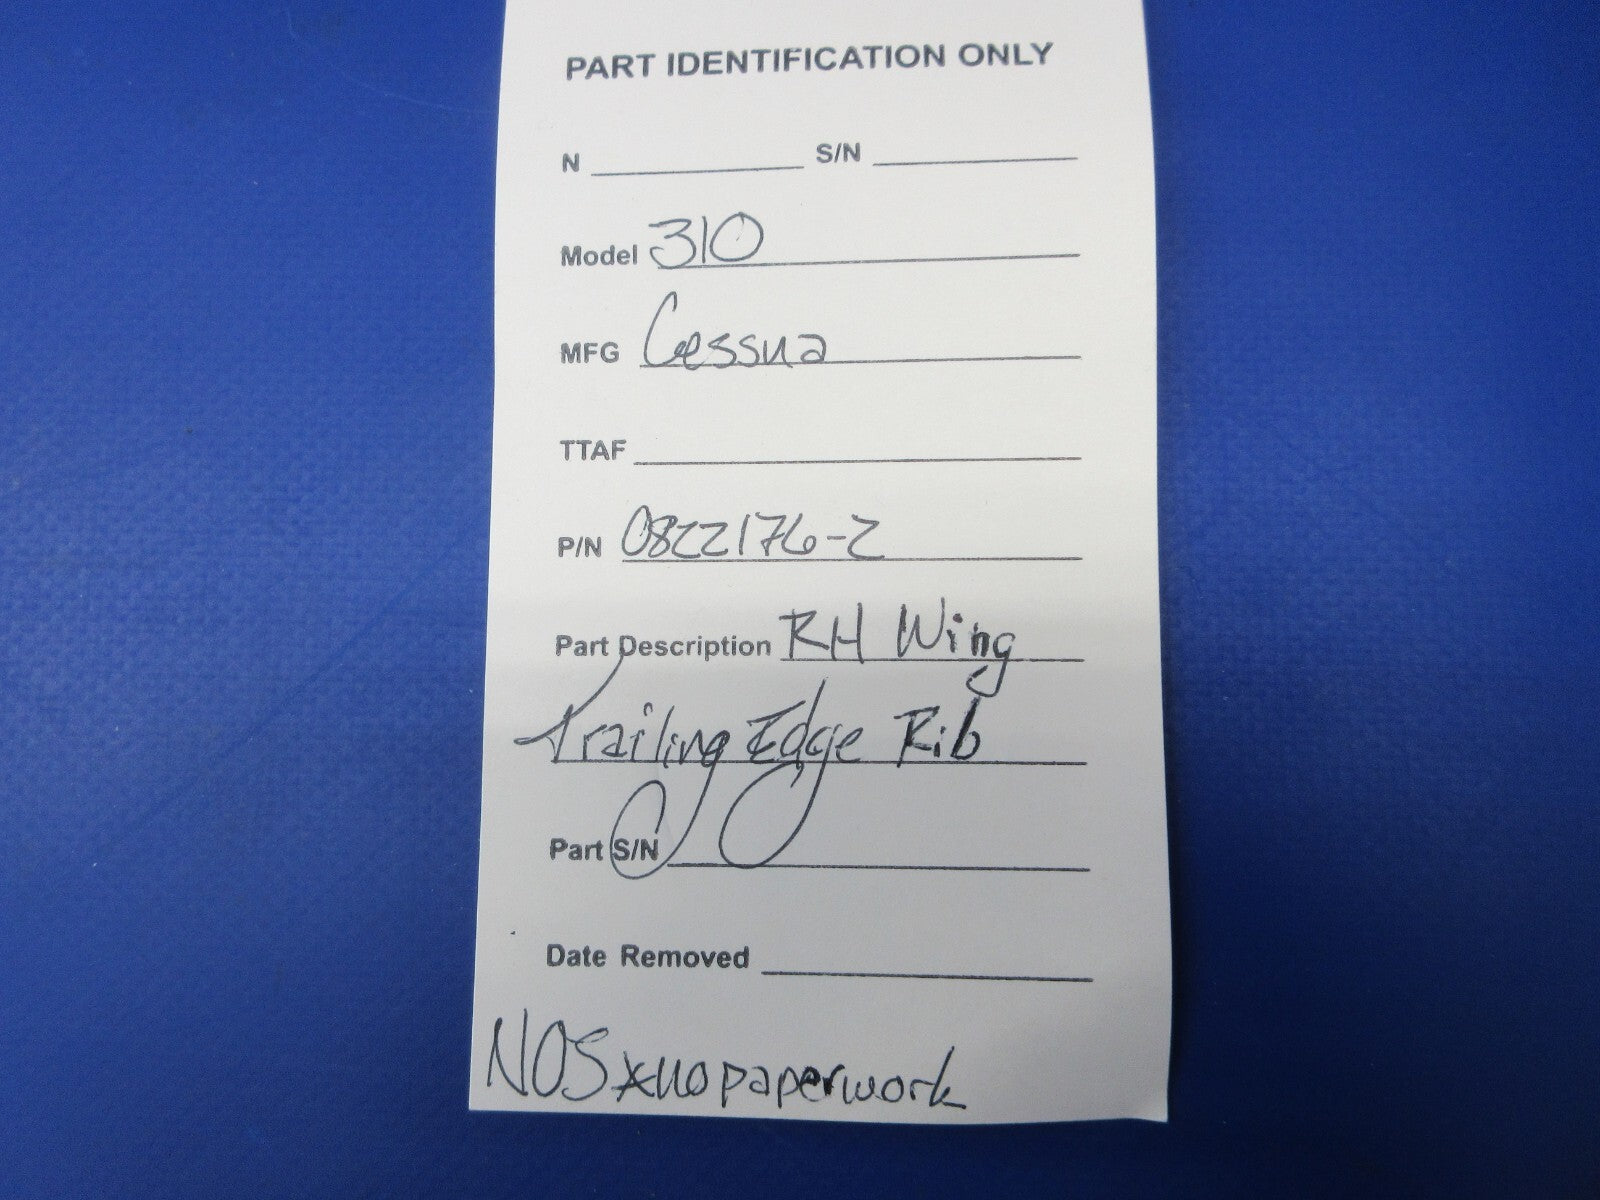 PART IDENTIFICATION ONLY
N S/N
Model 310
MFG Cessna
TTAF
P/N 0822176-2
Part Description RH Wing
Trailing Edge Rib
Part S/N
Date Removed
NOS *no paperwork